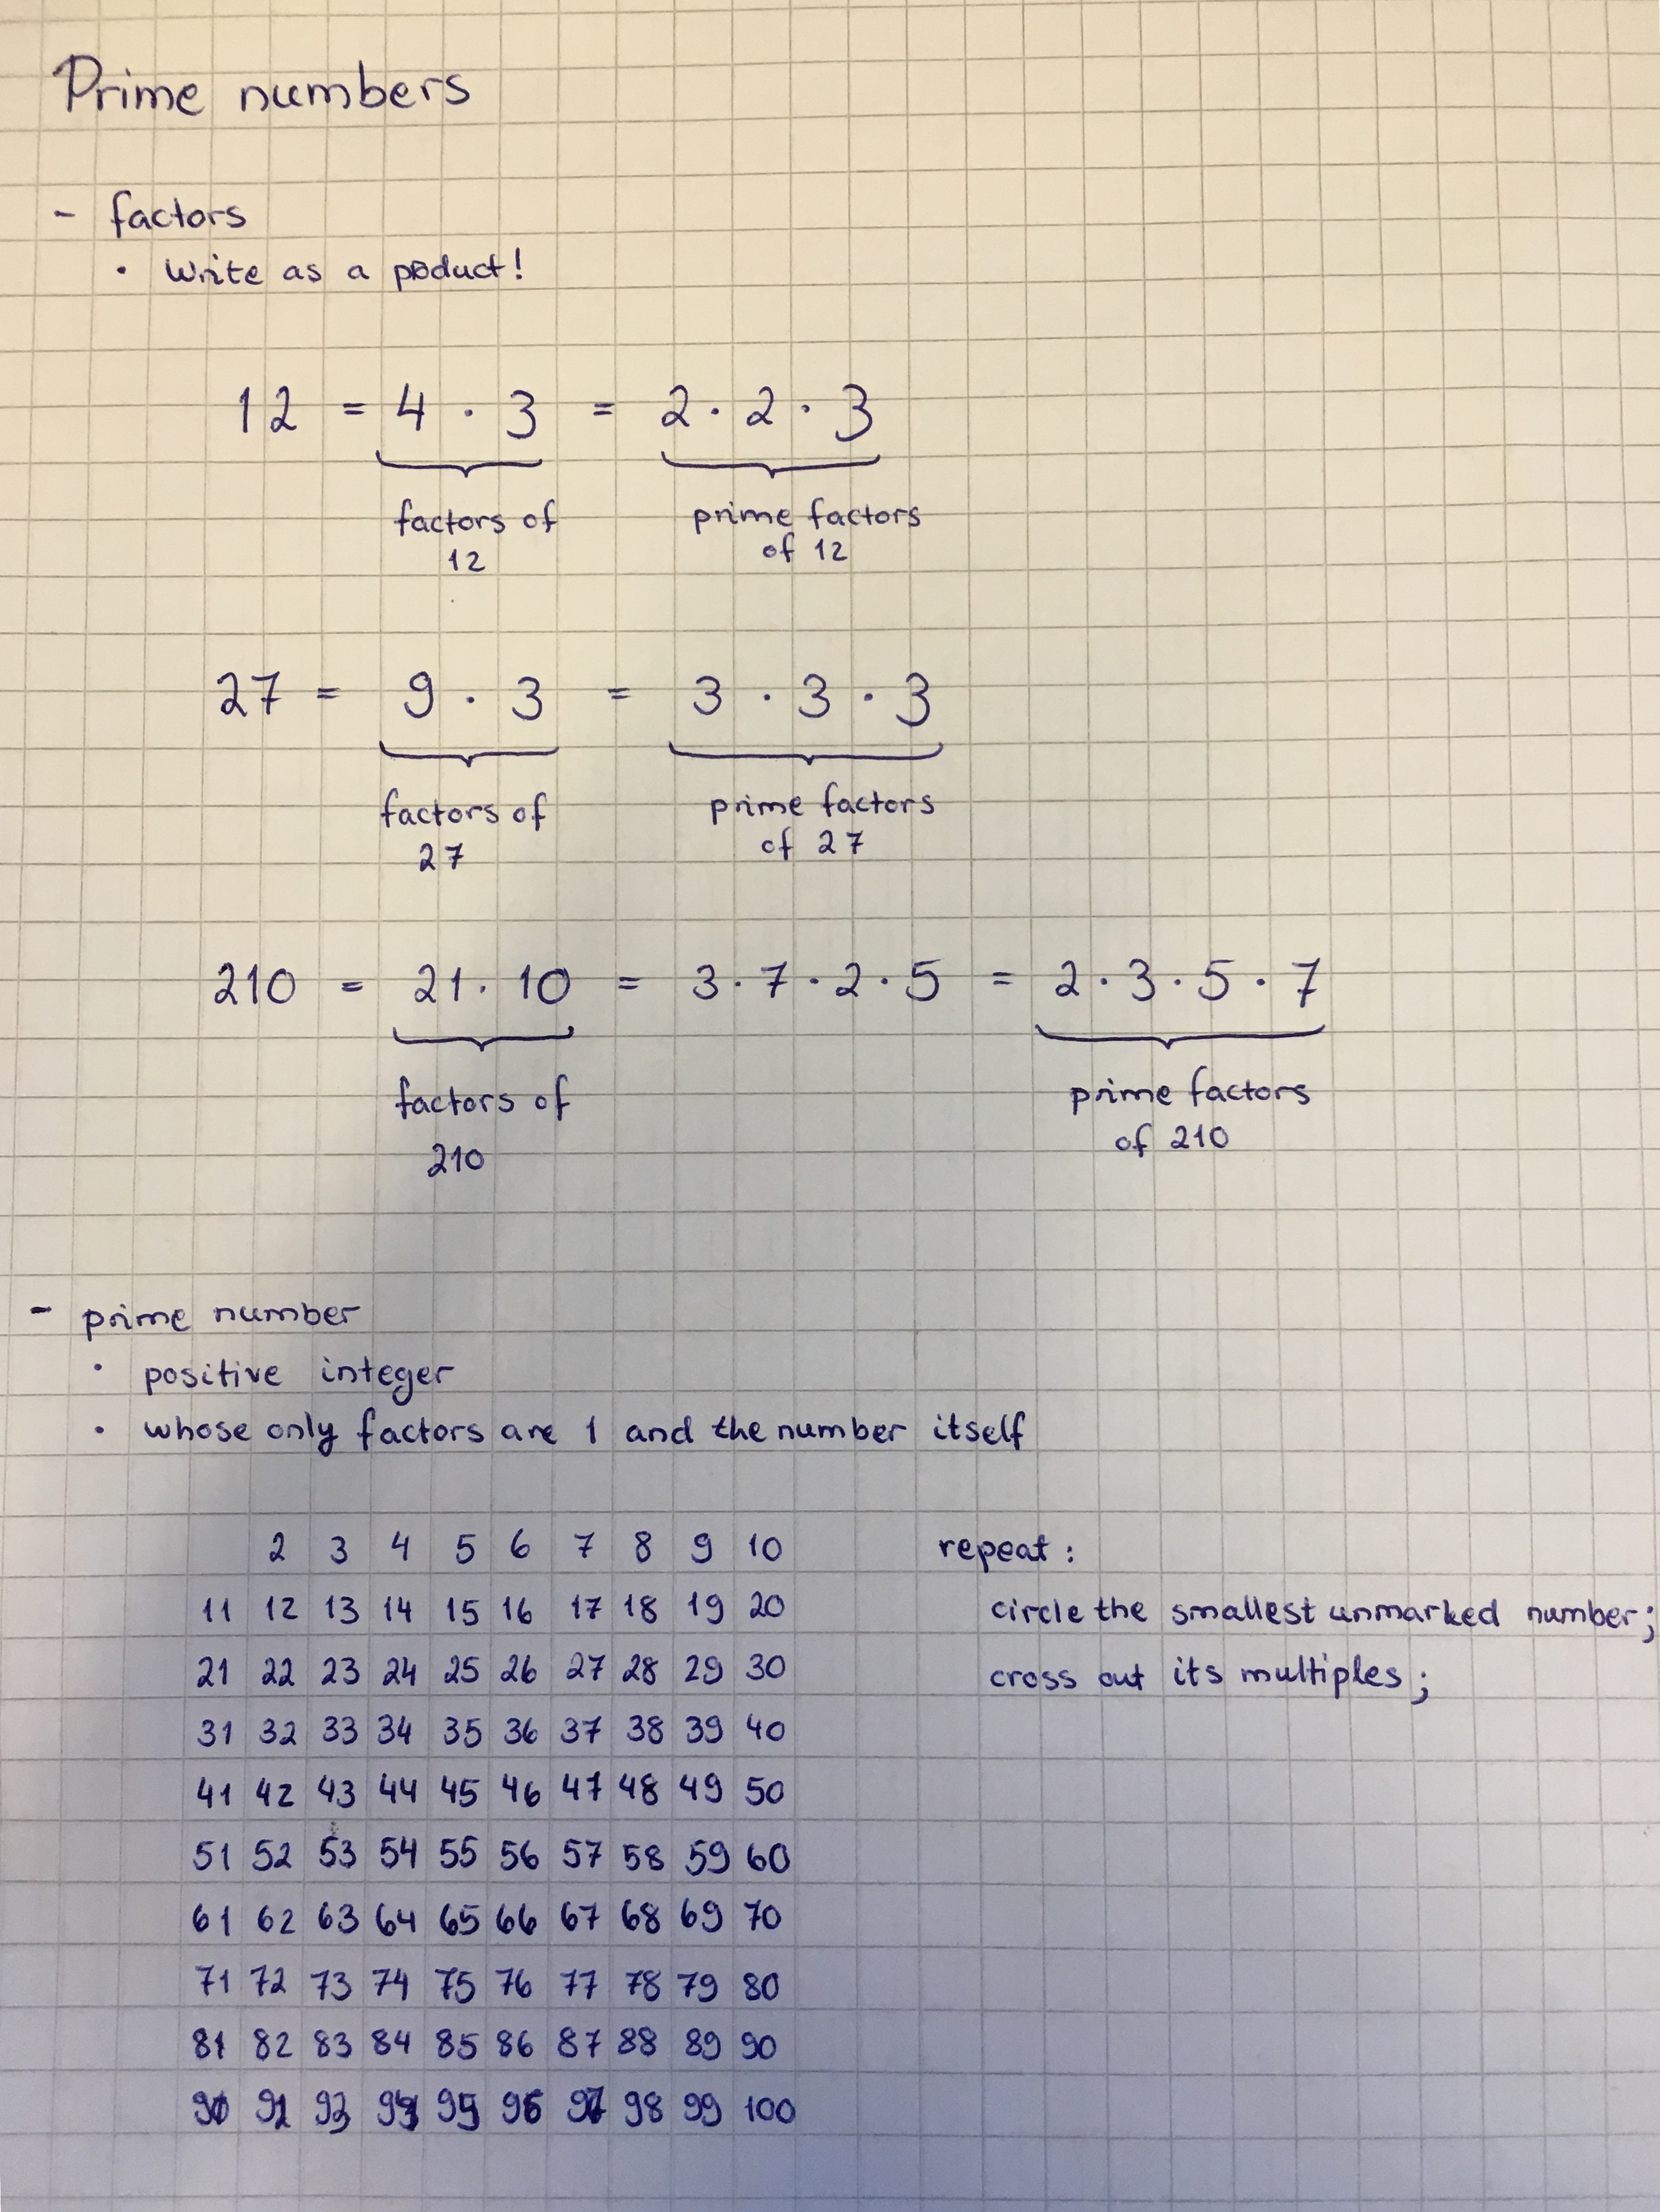 Prime numbers
- factors
• Write as a product!
12 = 4 · 3 = 2 · 2 · 3
factors of prime factors
12 of 12
27 = 9 · 3 = 3 · 3 · 3
factors of prime factors
27 of 27
210 = 21 · 10 = 3 · 7 · 2 · 5 = 2 · 3 · 5 · 7
factors of prime factors
210 of 210
- prime number
• positive integer
• whose only factors are 1 and the number itself
2 3 4 5 6 7 8 9 10 repeat:
11 12 13 14 15 16 17 18 19 20 circle the smallest unmarked number;
21 22 23 24 25 26 27 28 29 30 cross out its multiples;
31 32 33 34 35 36 37 38 39 40
41 42 43 44 45 46 47 48 49 50
51 52 53 54 55 56 57 58 59 60
61 62 63 64 65 66 67 68 69 70
71 72 73 74 75 76 77 78 79 80
81 82 83 84 85 86 87 88 89 90
91 92 93 94 95 96 97 98 99 100